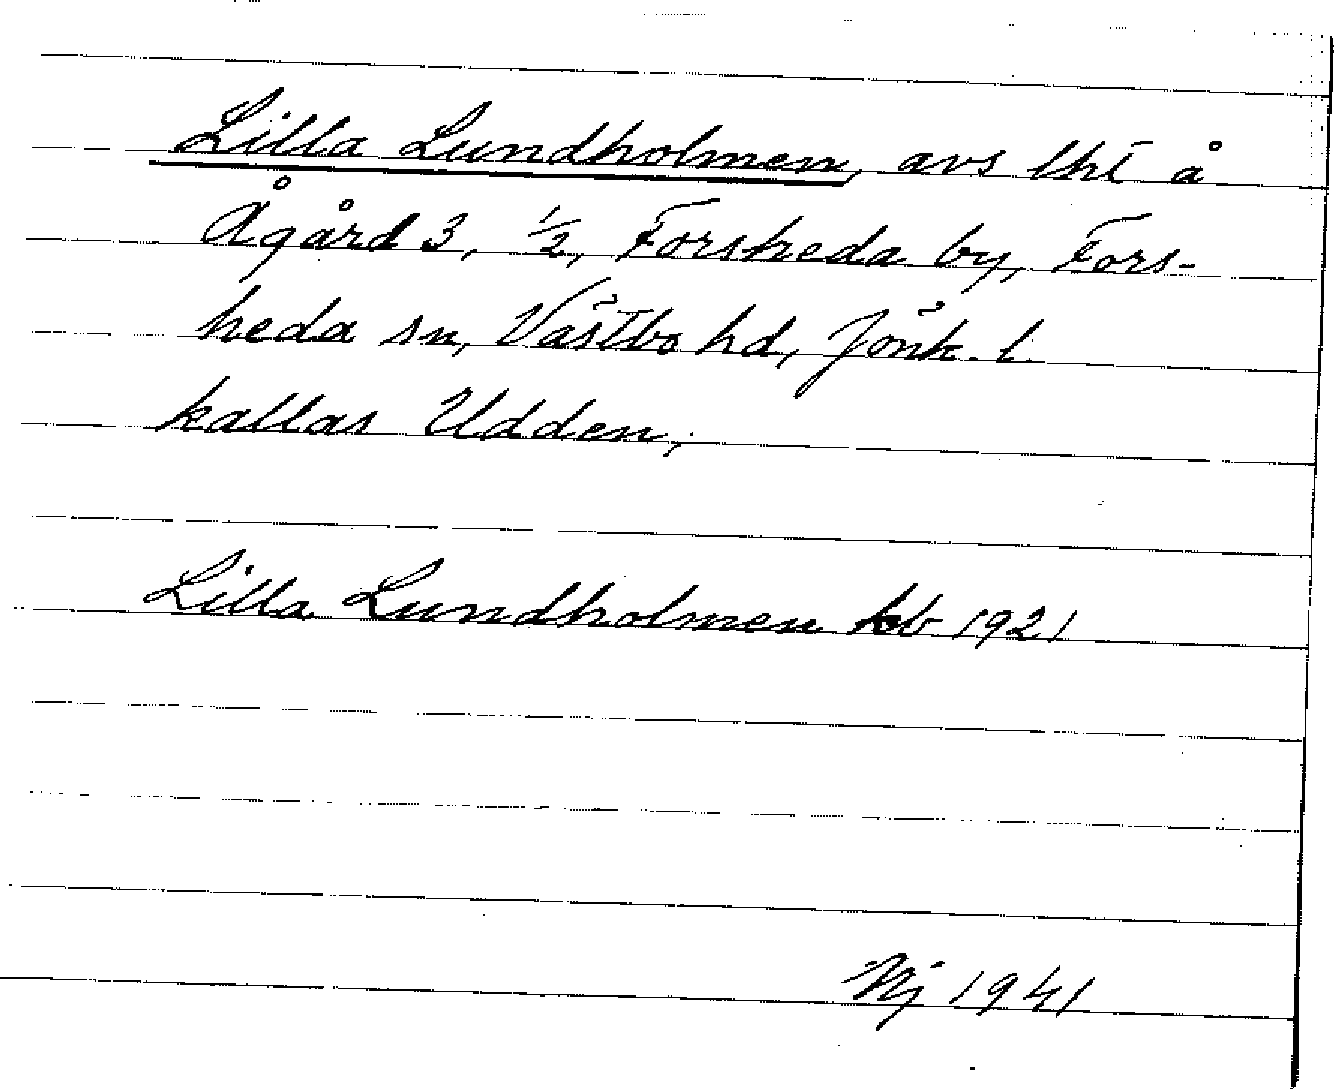 Lilla Lundholmen, avs lht å
Ågård 3, ½, Forsheda by, Fors-
heda sn, Västbo hd, Jönk. l.
kallas Udden,
Lilla Lundholmen kb 1921
1941